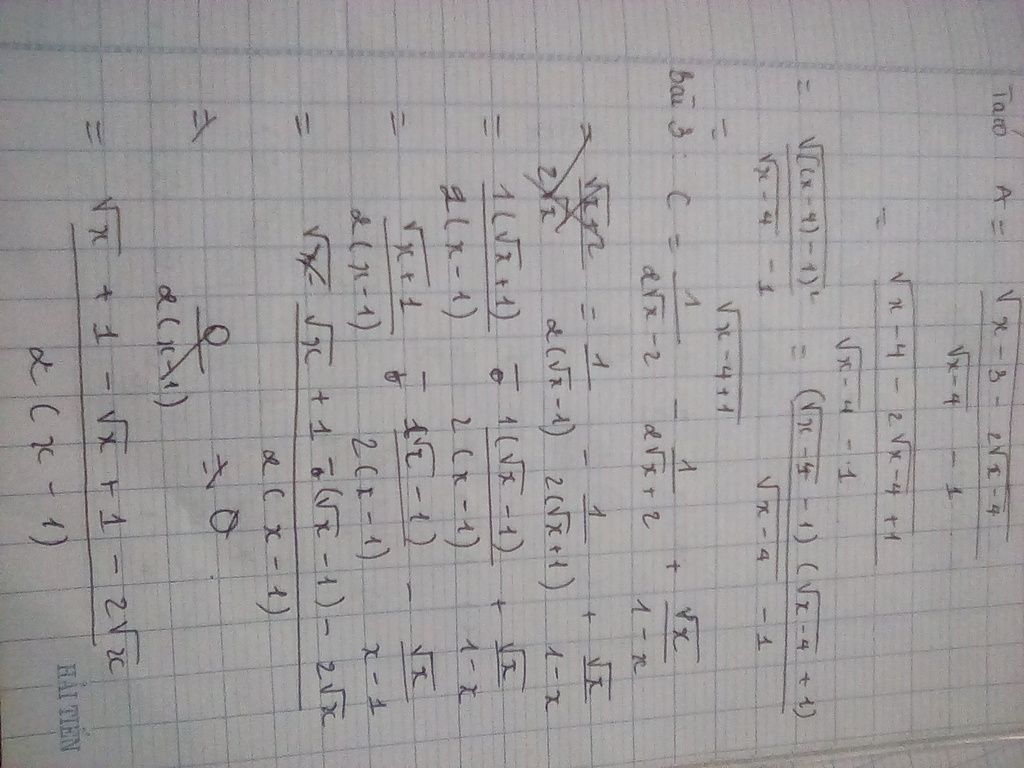 A = √(x - 3 - 2√(x-4)) / (√(x-4) - 1)
= √(x - 4 - 2√(x-4) + 1) / (√(x-4) - 1)
= √((√(x-4) - 1)²) / (√(x-4) - 1) = (√(x-4) - 1)(√(x-4) + 1) / (√(x-4) - 1)
= √(x-4+1)
Bài 3: C = 1/(2√x - 2) - 1/(2√x + 2) + √x/(1 - x)
= 1/(2(√x - 1)) - 1/(2(√x + 1)) + √x/(1 - x)
= 1(√x + 1)/(2(x - 1)) - 1(√x - 1)/(2(x - 1)) + √x/(1 - x)
= (√x + 1)/(2(x - 1)) - (1√x - 1)/(2(x - 1)) - √x/(x - 1)
= (√x + 1 - (√x - 1) - 2√x)/(2(x - 1))
= 0/(2(x - 1)) = 0
= (√x + 1 - √x + 1 - 2√x)/(2(x - 1))
HẢI TIẾN